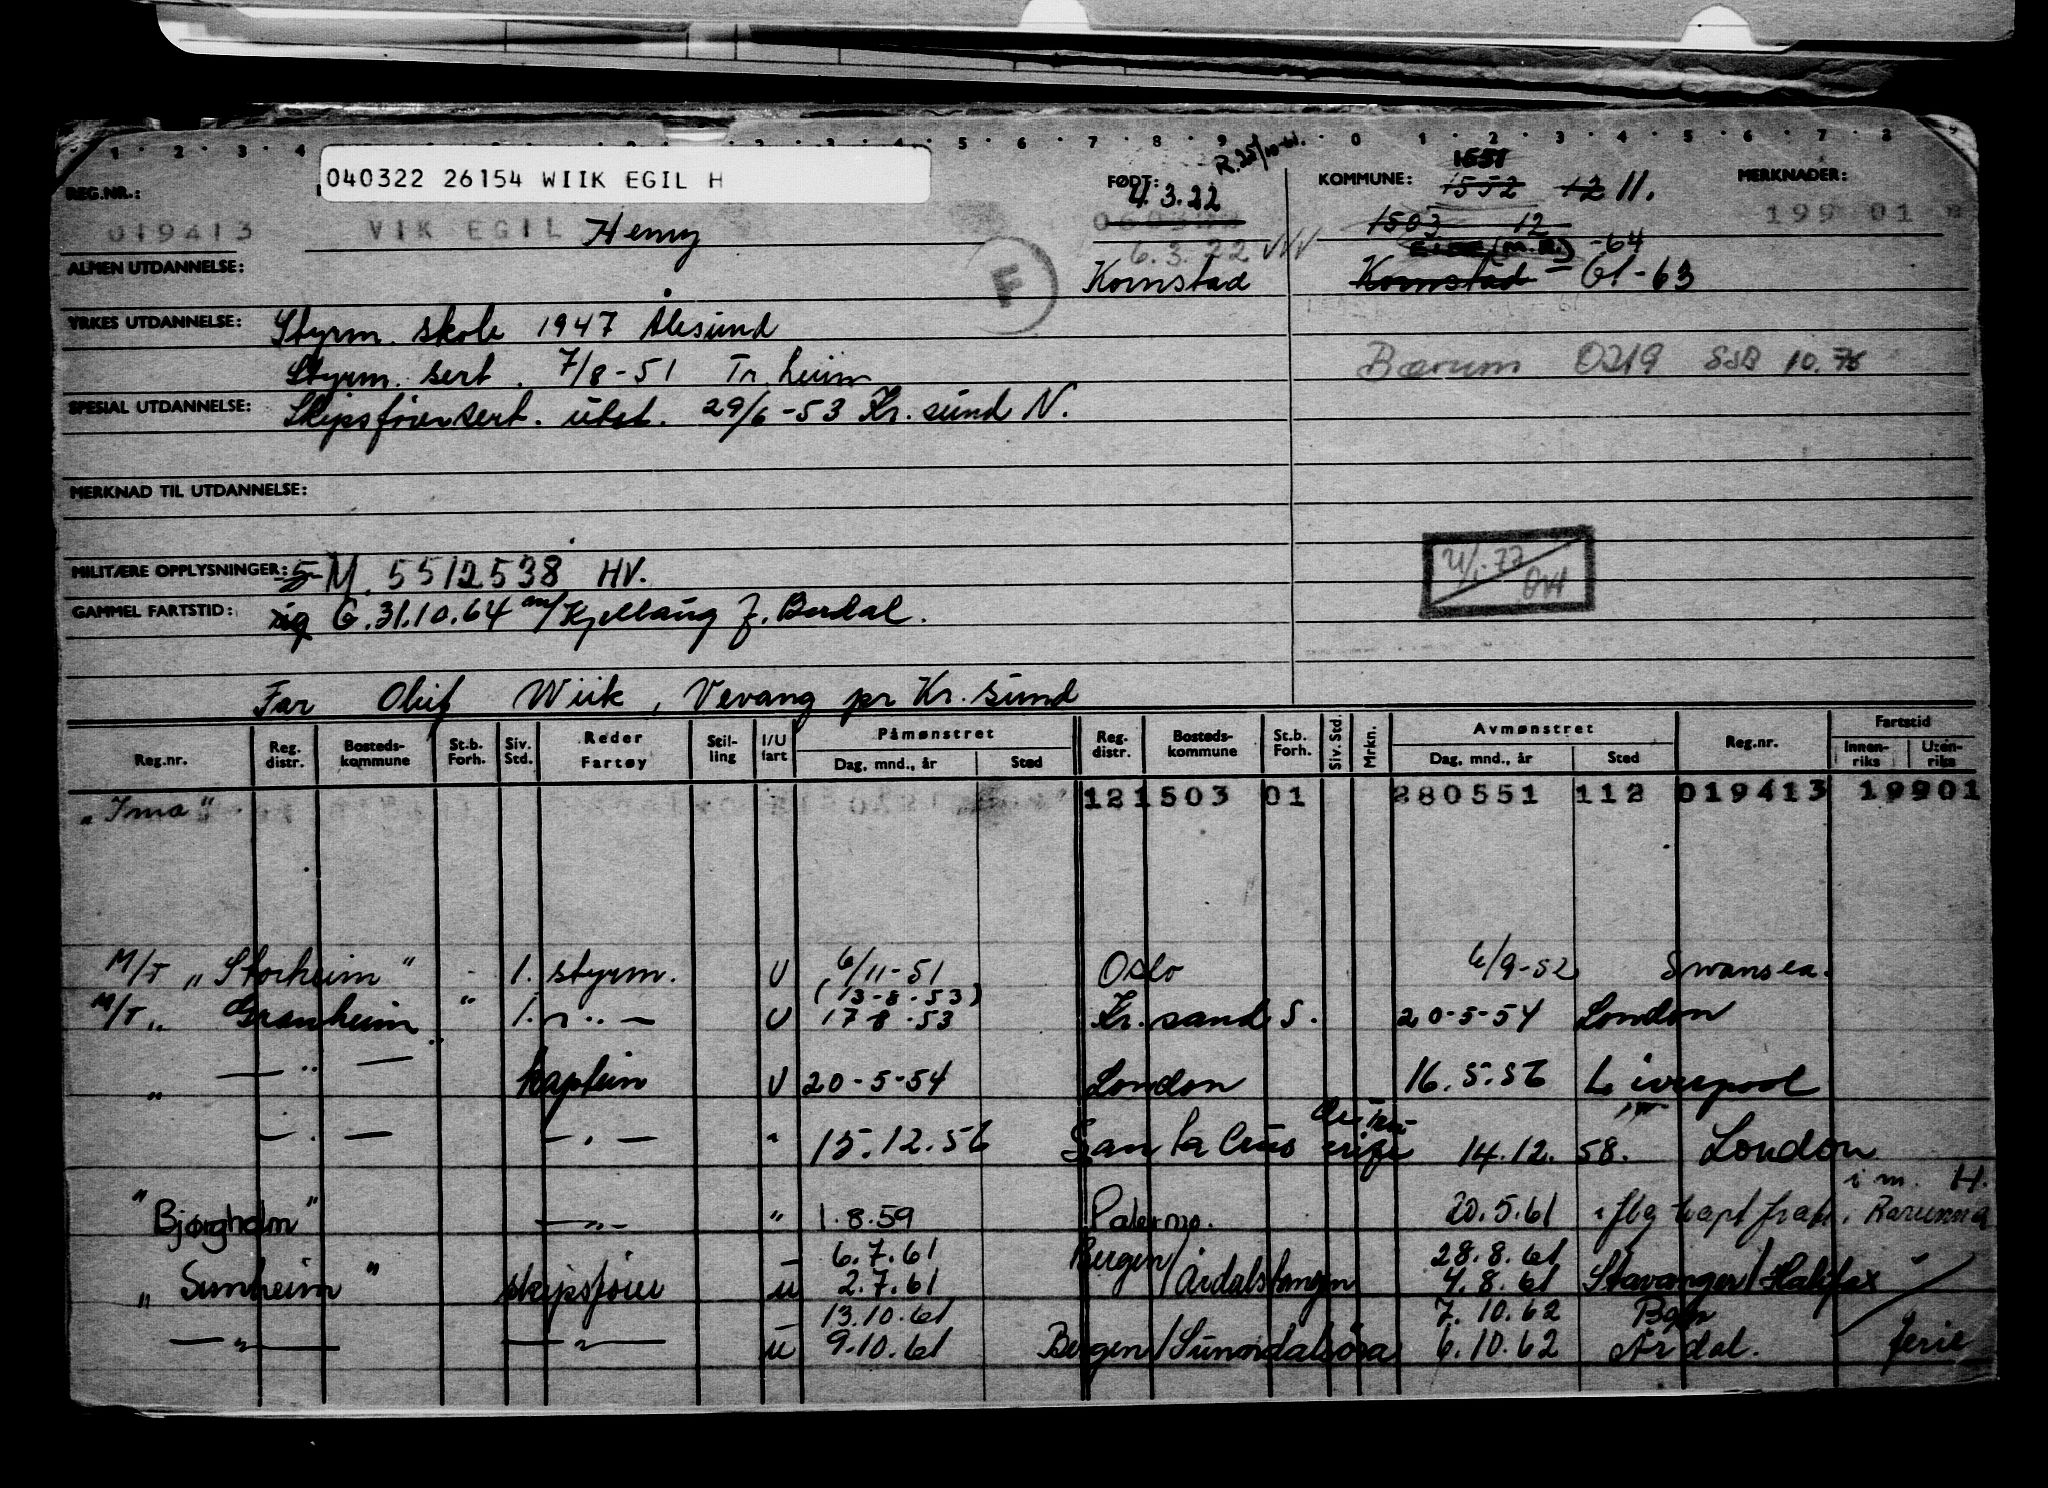 1 2 3 4 5 6 7 8 9 0 1 2 3 4 5 6 7 8
R.25/10-61.
040322 26154 WIIK EGIL H
REG.NR.: FØDT: 4.3.22 KOMMUNE: 1551 1552 12 11. MERKNADER:
019413 VIK EGIL Henry 1503 12 199 01
6.3.22 VVV (M.R.) -64
ALMEN UTDANNELSE: E Kornstad Kornstad - 61-63
YRKES UTDANNELSE: Styrm. skole 1947 Ålesund
Styrm. sert. 7/8-51 Tr.heim Bærum 0219 SSB 10.76
SPESIAL UTDANNELSE: Skipsførersert. utst. 29/6-53 Kr.sund N.
MERKNAD TIL UTDANNELSE:
MILITÆRE OPPLYSNINGER: M. 5512538 HV.
GAMMEL FARTSTID: G.31.10.64 m/Kjellaug f. Berdal.
Far Oluf Wiik, Vevang pr Kr.sund
Reg.nr. Reg. distr. Bosteds-kommune St.b. Forh. Siv. Std. Reder Fartøy Stil-ling I/U fart Påmønstret Dag, mnd., år Sted Reg. distr. Bosteds-kommune St.b. Forh. Siv. Std. Mrkn. Avmønstret Dag, mnd., år Sted Reg.nr. Fartstid Innen-riks Uten-riks
"Ima" 121503 01 280551 112 019413 19901
M/T "Storheim" 1. styrm. U 6/11-51 Oslo 6/9-52 Swansea.
(13-8-53)
M/T " Granheim " 1. - " - U 17-8-53 Kr.sand S. 20-5-54 London
" - " - kaptein U 20-5-54 London 16.5.56 Liverpool
- " - - " - " 15.12.56 Santa Cruz 14.12.58. London
i m. H.
"Bjørgholm" - " - " 1.8.59 Palermo. 20.5.61 Ravenna
6.7.61 28.8.61
" Sunheim " skipsfører U 2.7.61 Bergen/Årdalstangen 4.8.61 Stavanger/Halifax
13.10.61 7.10.62 Bgn
- " - - " - U 9.10.61 Bergen/Sunndalsøra 6.10.62 Årdal. ferie